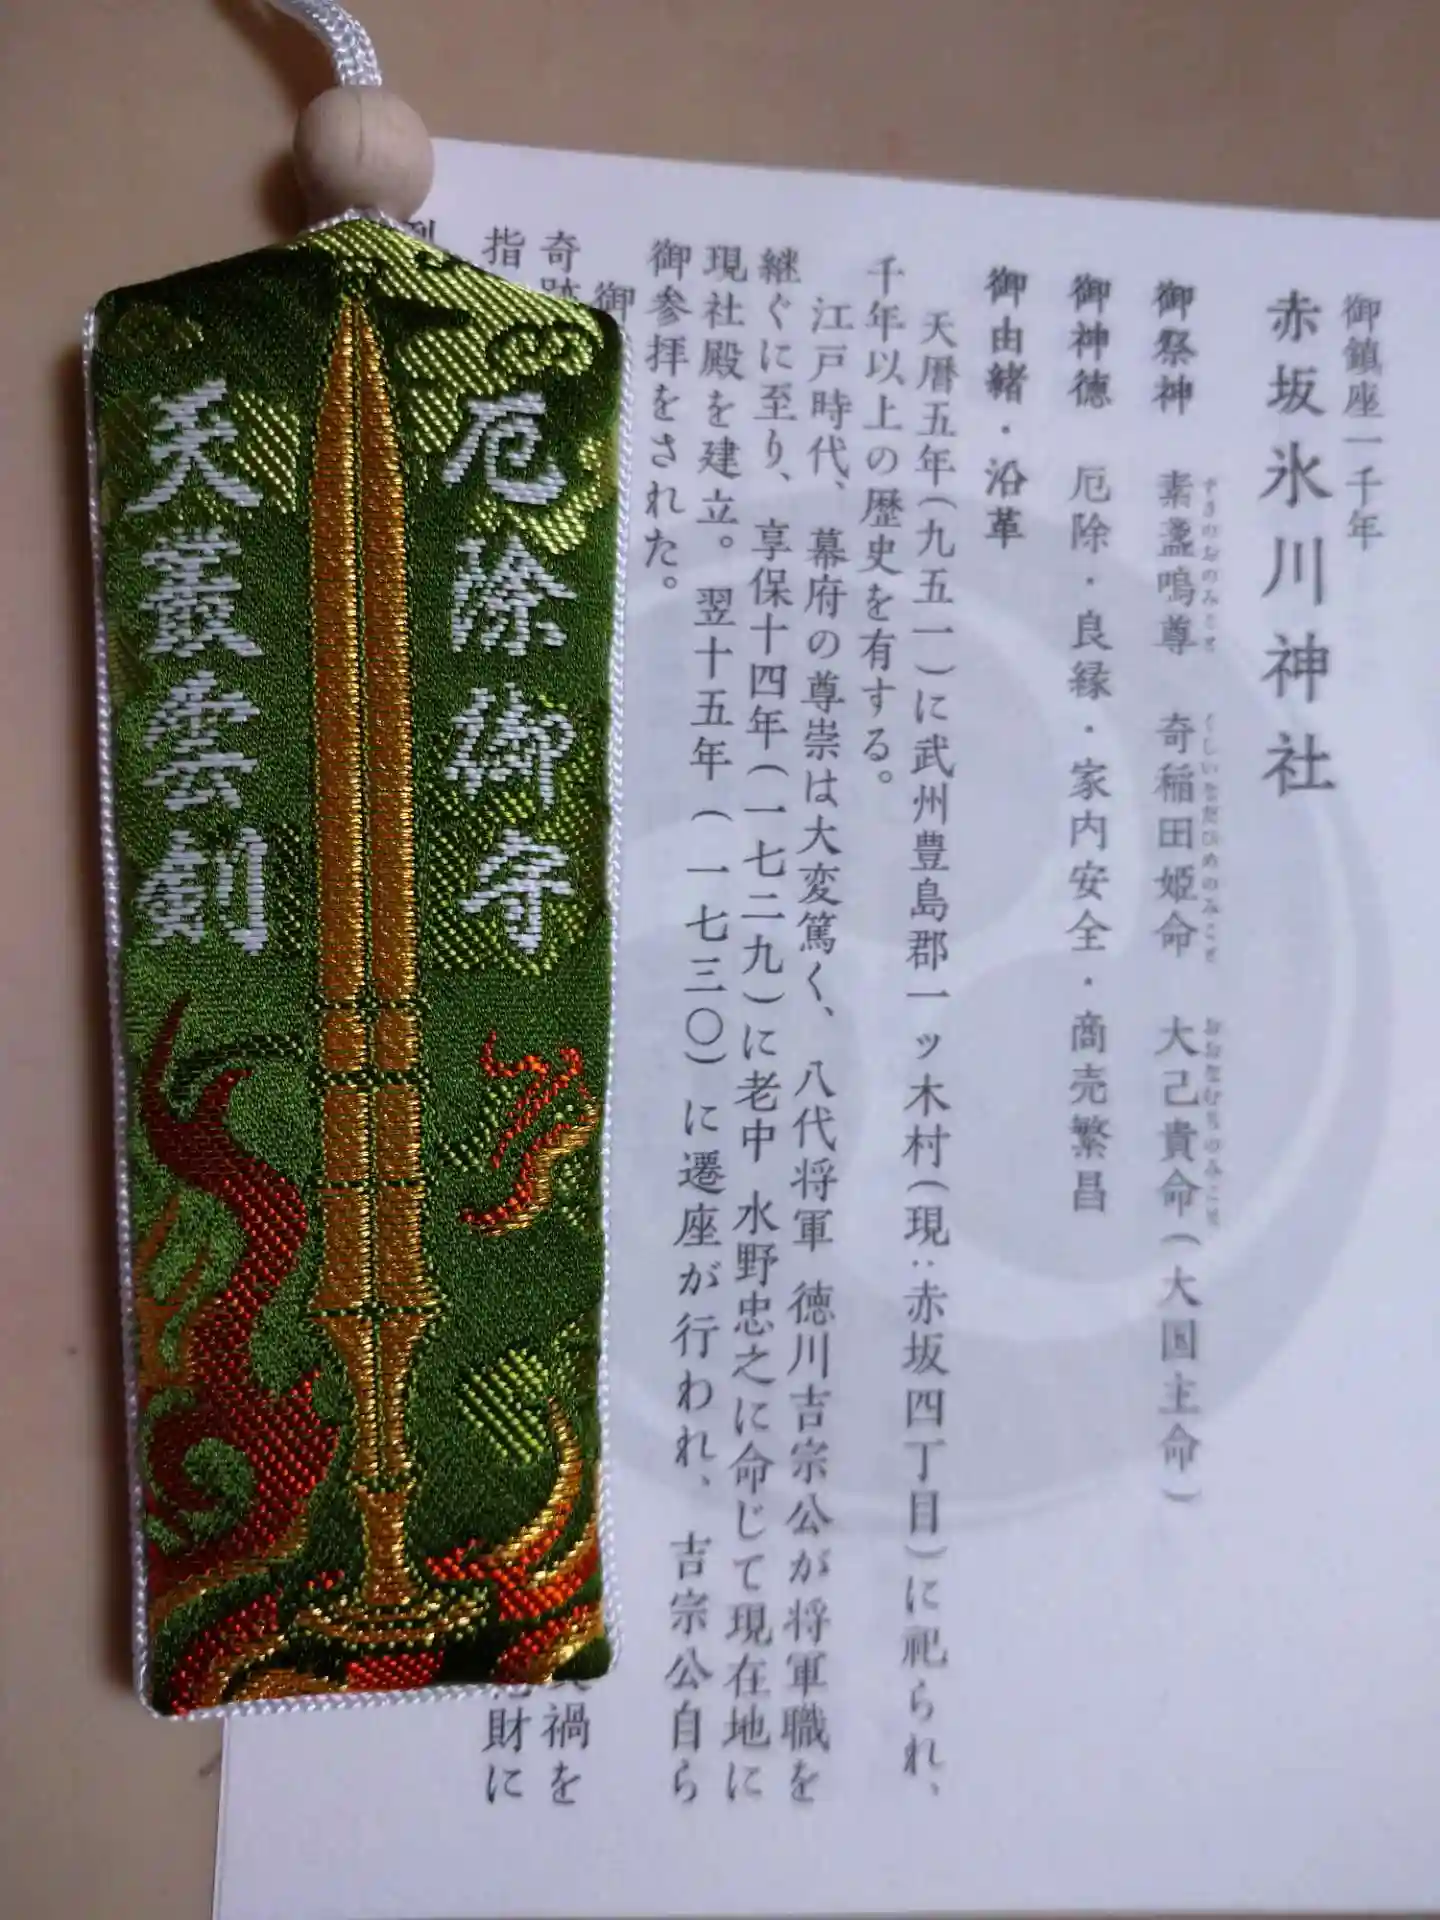 厄除御守
天叢雲剣
御鎮座一千年
赤坂氷川神社
御祭神 素盞嗚尊 奇稲田姫命 大己貴命(大国主命)
すさのおのみこと くしいなだひめのみこと おおなむぢのみこと
御神徳 厄除・良縁・家内安全・商売繁昌
御由緒・沿革
天暦五年(九五一)に武州豊島郡一ッ木村(現:赤坂四丁目)に祀られ、
千年以上の歴史を有する。
江戸時代、幕府の尊崇は大変篤く、八代将軍 徳川吉宗公が将軍職を
継ぐに至り、享保十四年(一七二九)に老中 水野忠之に命じて現在地に
現社殿を建立。翌十五年(一七三〇)に遷座が行われ、吉宗公自ら
御参拝をされた。
御
奇跡 禍を
指 財に